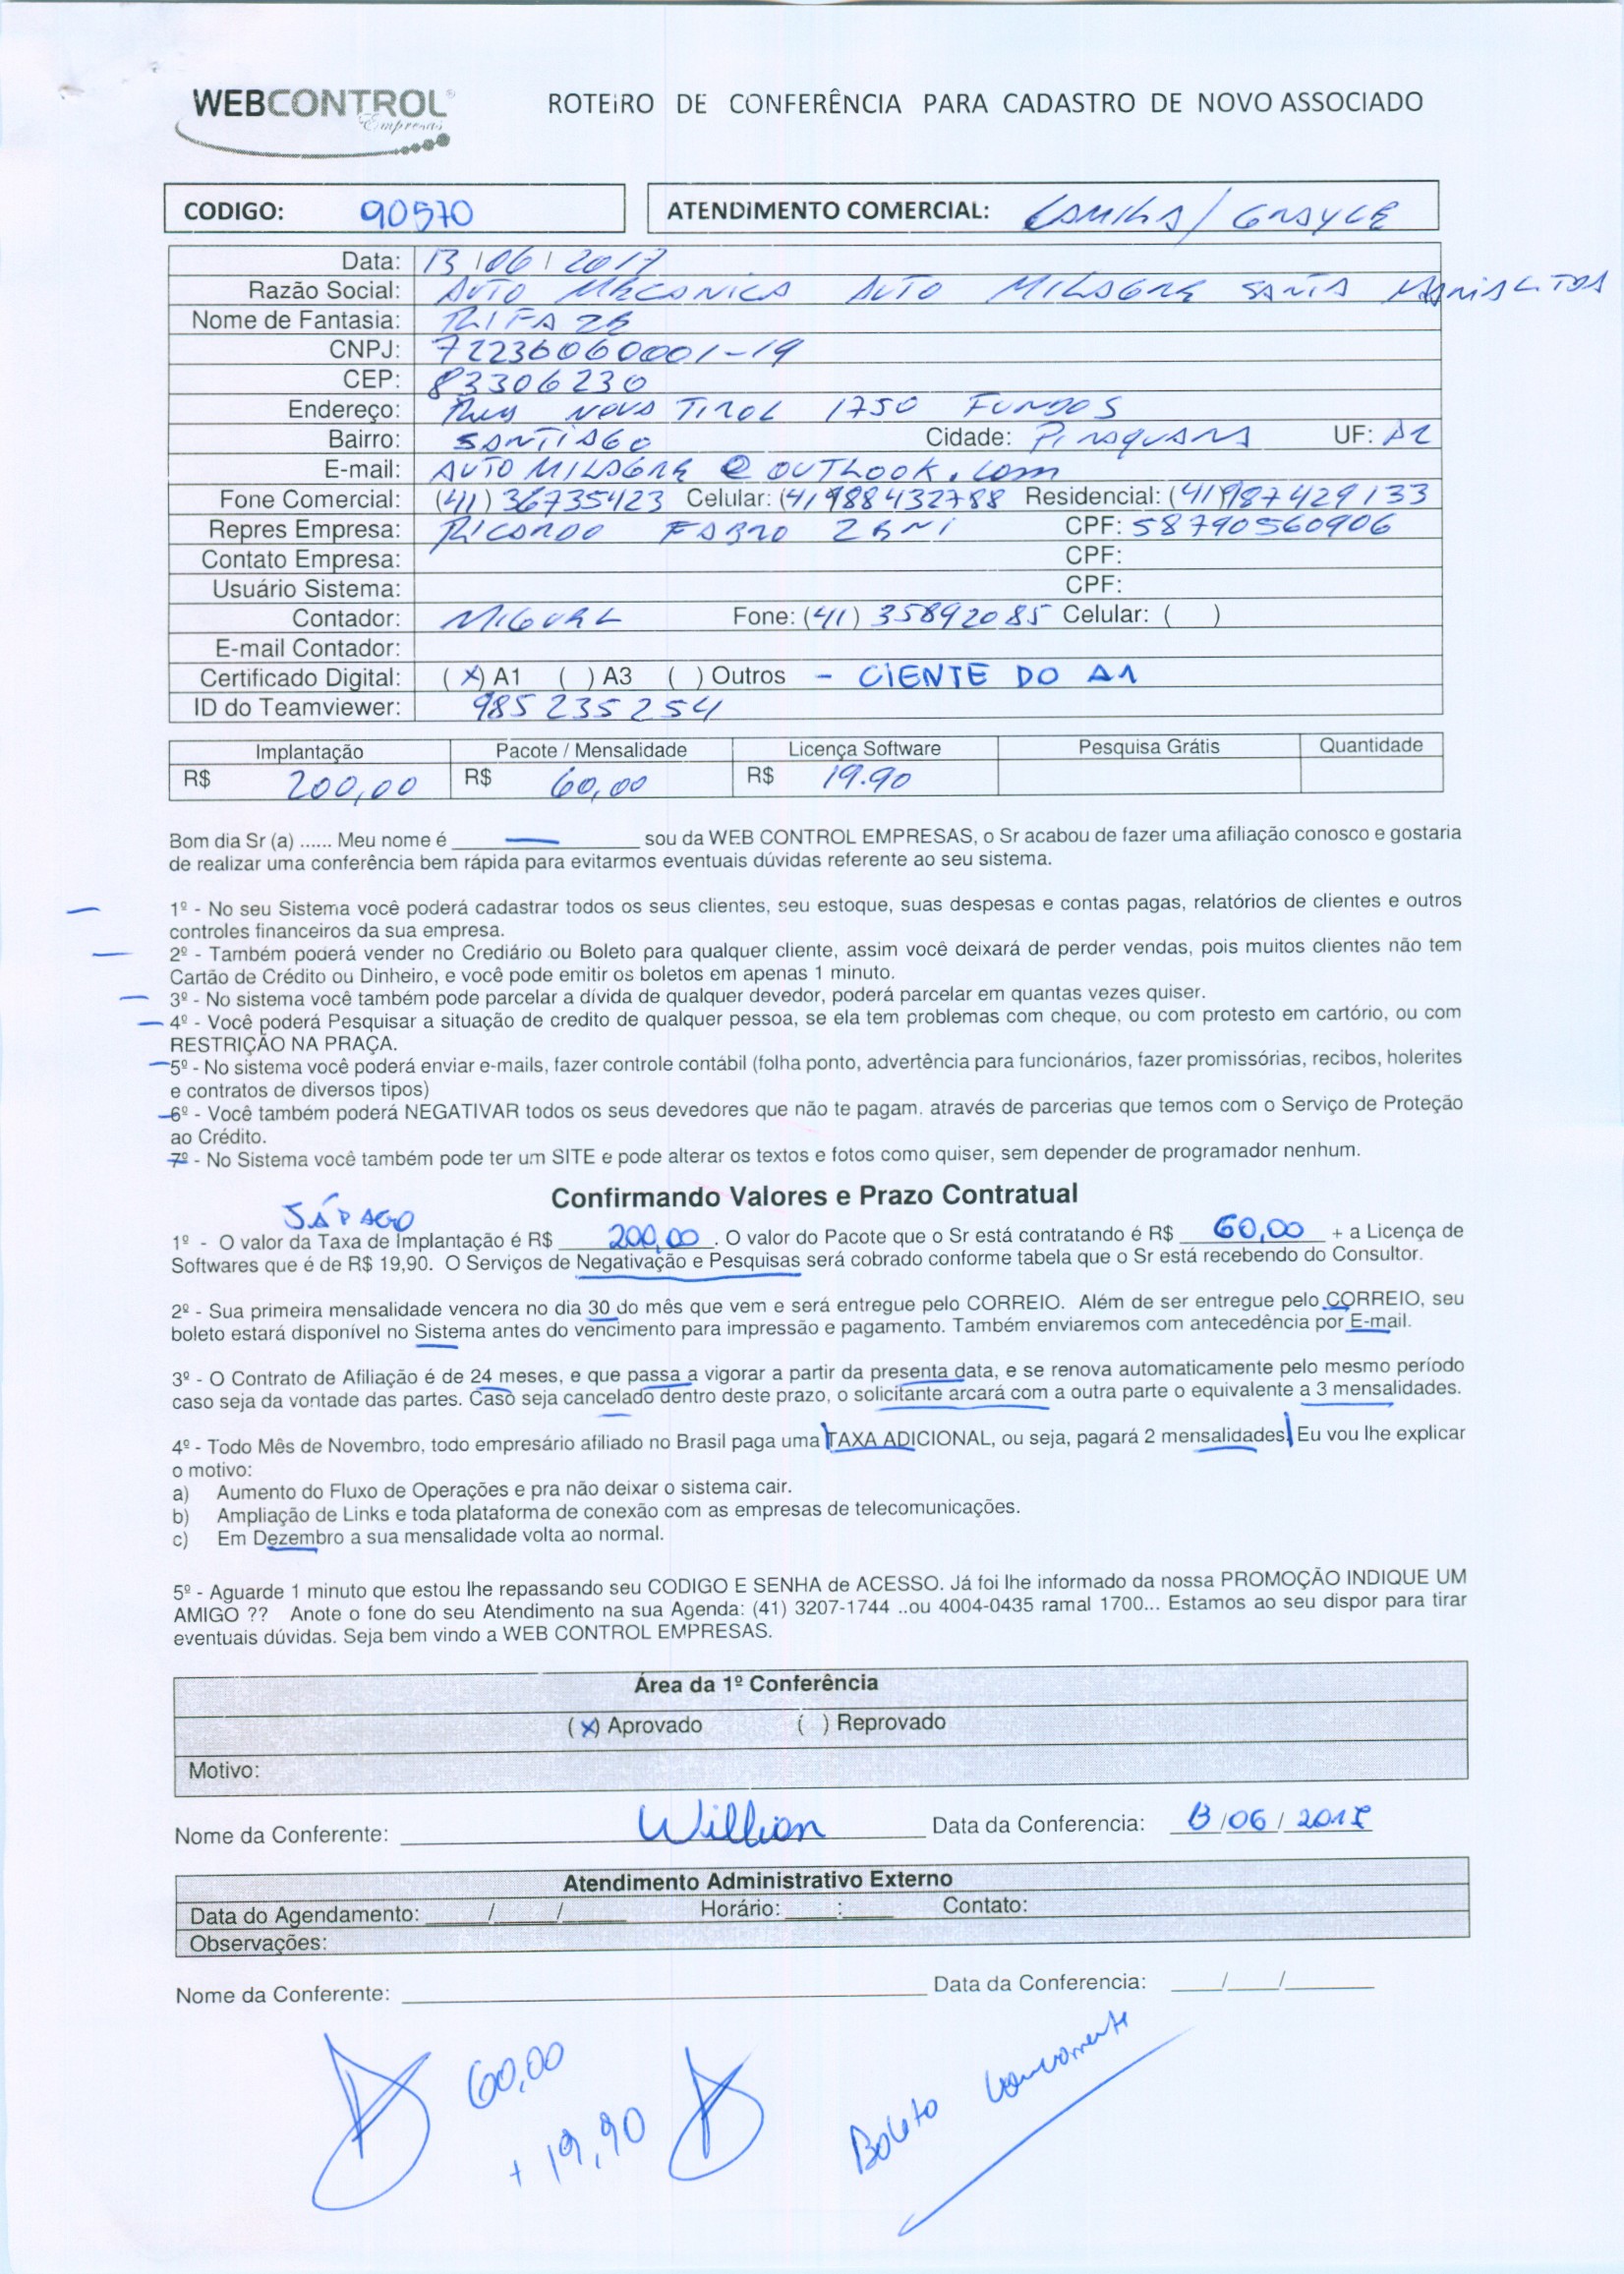 WEBCONTROL Empresas ROTEIRO DE CONFERÊNCIA PARA CADASTRO DE NOVO ASSOCIADO
CODIGO: 90570 ATENDIMENTO COMERCIAL: CAMILA / GRAYCE
Data: 13/06/2017
Razão Social: AUTO MECANICA AUTO MILAGRE SANTA MARIA LTDA
Nome de Fantasia: RIFAZE
CNPJ: 72236060001-19
CEP: 83306230
Endereço: Rua NOVO TIROL 1750 FUNDOS
Bairro: SANTIAGO Cidade: PIRAQUARA UF:
E-mail: AUTOMILAGRE@OUTLOOK.com
Fone Comercial: (41) 36735423 Celular: (41) 988432788 Residencial: (41) 987429133
Repres Empresa: RICARDO FABRO ZENI CPF: 58790560906
Contato Empresa: CPF:
Usuário Sistema: CPF:
Contador: MIGUEL Fone: (41) 35892085 Celular: ( )
E-mail Contador:
Certificado Digital: (X) A1 ( ) A3 ( ) Outros - CIENTE DO A1
ID do Teamviewer: 985 235 254
Implantação Pacote / Mensalidade Licença Software Pesquisa Grátis Quantidade
R$ 200,00 R$ 60,00 R$ 19.90
Bom dia Sr (a) ...... Meu nome é ______ sou da WEB CONTROL EMPRESAS, o Sr acabou de fazer uma afiliação conosco e gostaria
de realizar uma conferência bem rápida para evitarmos eventuais dúvidas referente ao seu sistema.
1º - No seu Sistema você poderá cadastrar todos os seus clientes, seu estoque, suas despesas e contas pagas, relatórios de clientes e outros
controles financeiros da sua empresa.
2º - Também poderá vender no Crediário ou Boleto para qualquer cliente, assim você deixará de perder vendas, pois muitos clientes não tem
Cartão de Crédito ou Dinheiro, e você pode emitir os boletos em apenas 1 minuto.
3º - No sistema você também pode parcelar a dívida de qualquer devedor, poderá parcelar em quantas vezes quiser.
4º - Você poderá Pesquisar a situação de credito de qualquer pessoa, se ela tem problemas com cheque, ou com protesto em cartório, ou com
RESTRIÇÃO NA PRAÇA.
5º - No sistema você poderá enviar e-mails, fazer controle contábil (folha ponto, advertência para funcionários, fazer promissórias, recibos, holerites
e contratos de diversos tipos)
6º - Você também poderá NEGATIVAR todos os seus devedores que não te pagam. através de parcerias que temos com o Serviço de Proteção
ao Crédito.
7º - No Sistema você também pode ter um SITE e pode alterar os textos e fotos como quiser, sem depender de programador nenhum.
Confirmando Valores e Prazo Contratual
JÁ PAGO
1º - O valor da Taxa de Implantação é R$ 200,00. O valor do Pacote que o Sr está contratando é R$ 60,00 + a Licença de
Softwares que é de R$ 19,90. O Serviços de Negativação e Pesquisas será cobrado conforme tabela que o Sr está recebendo do Consultor.
2º - Sua primeira mensalidade vencera no dia 30 do mês que vem e será entregue pelo CORREIO. Além de ser entregue pelo CORREIO, seu
boleto estará disponível no Sistema antes do vencimento para impressão e pagamento. Também enviaremos com antecedência por E-mail.
3º - O Contrato de Afiliação é de 24 meses, e que passa a vigorar a partir da presenta data, e se renova automaticamente pelo mesmo período
caso seja da vontade das partes. Caso seja cancelado dentro deste prazo, o solicitante arcará com a outra parte o equivalente a 3 mensalidades.
4º - Todo Mês de Novembro, todo empresário afiliado no Brasil paga uma TAXA ADICIONAL, ou seja, pagará 2 mensalidades. Eu vou lhe explicar
o motivo:
a) Aumento do Fluxo de Operações e pra não deixar o sistema cair.
b) Ampliação de Links e toda plataforma de conexão com as empresas de telecomunicações.
c) Em Dezembro a sua mensalidade volta ao normal.
5º - Aguarde 1 minuto que estou lhe repassando seu CODIGO E SENHA de ACESSO. Já foi lhe informado da nossa PROMOÇÃO INDIQUE UM
AMIGO ?? Anote o fone do seu Atendimento na sua Agenda: (41) 3207-1744 ..ou 4004-0435 ramal 1700... Estamos ao seu dispor para tirar
eventuais dúvidas. Seja bem vindo a WEB CONTROL EMPRESAS.
Área da 1º Conferência
(X) Aprovado ( ) Reprovado
Motivo:
Nome da Conferente: Willian Data da Conferencia: 13/06/2017
Atendimento Administrativo Externo
Data do Agendamento: ___/___/___ Horário: ___:___ Contato:
Observações:
Nome da Conferente: ______ Data da Conferencia: ___/___/___
60,00
+ 19,90
Boleto